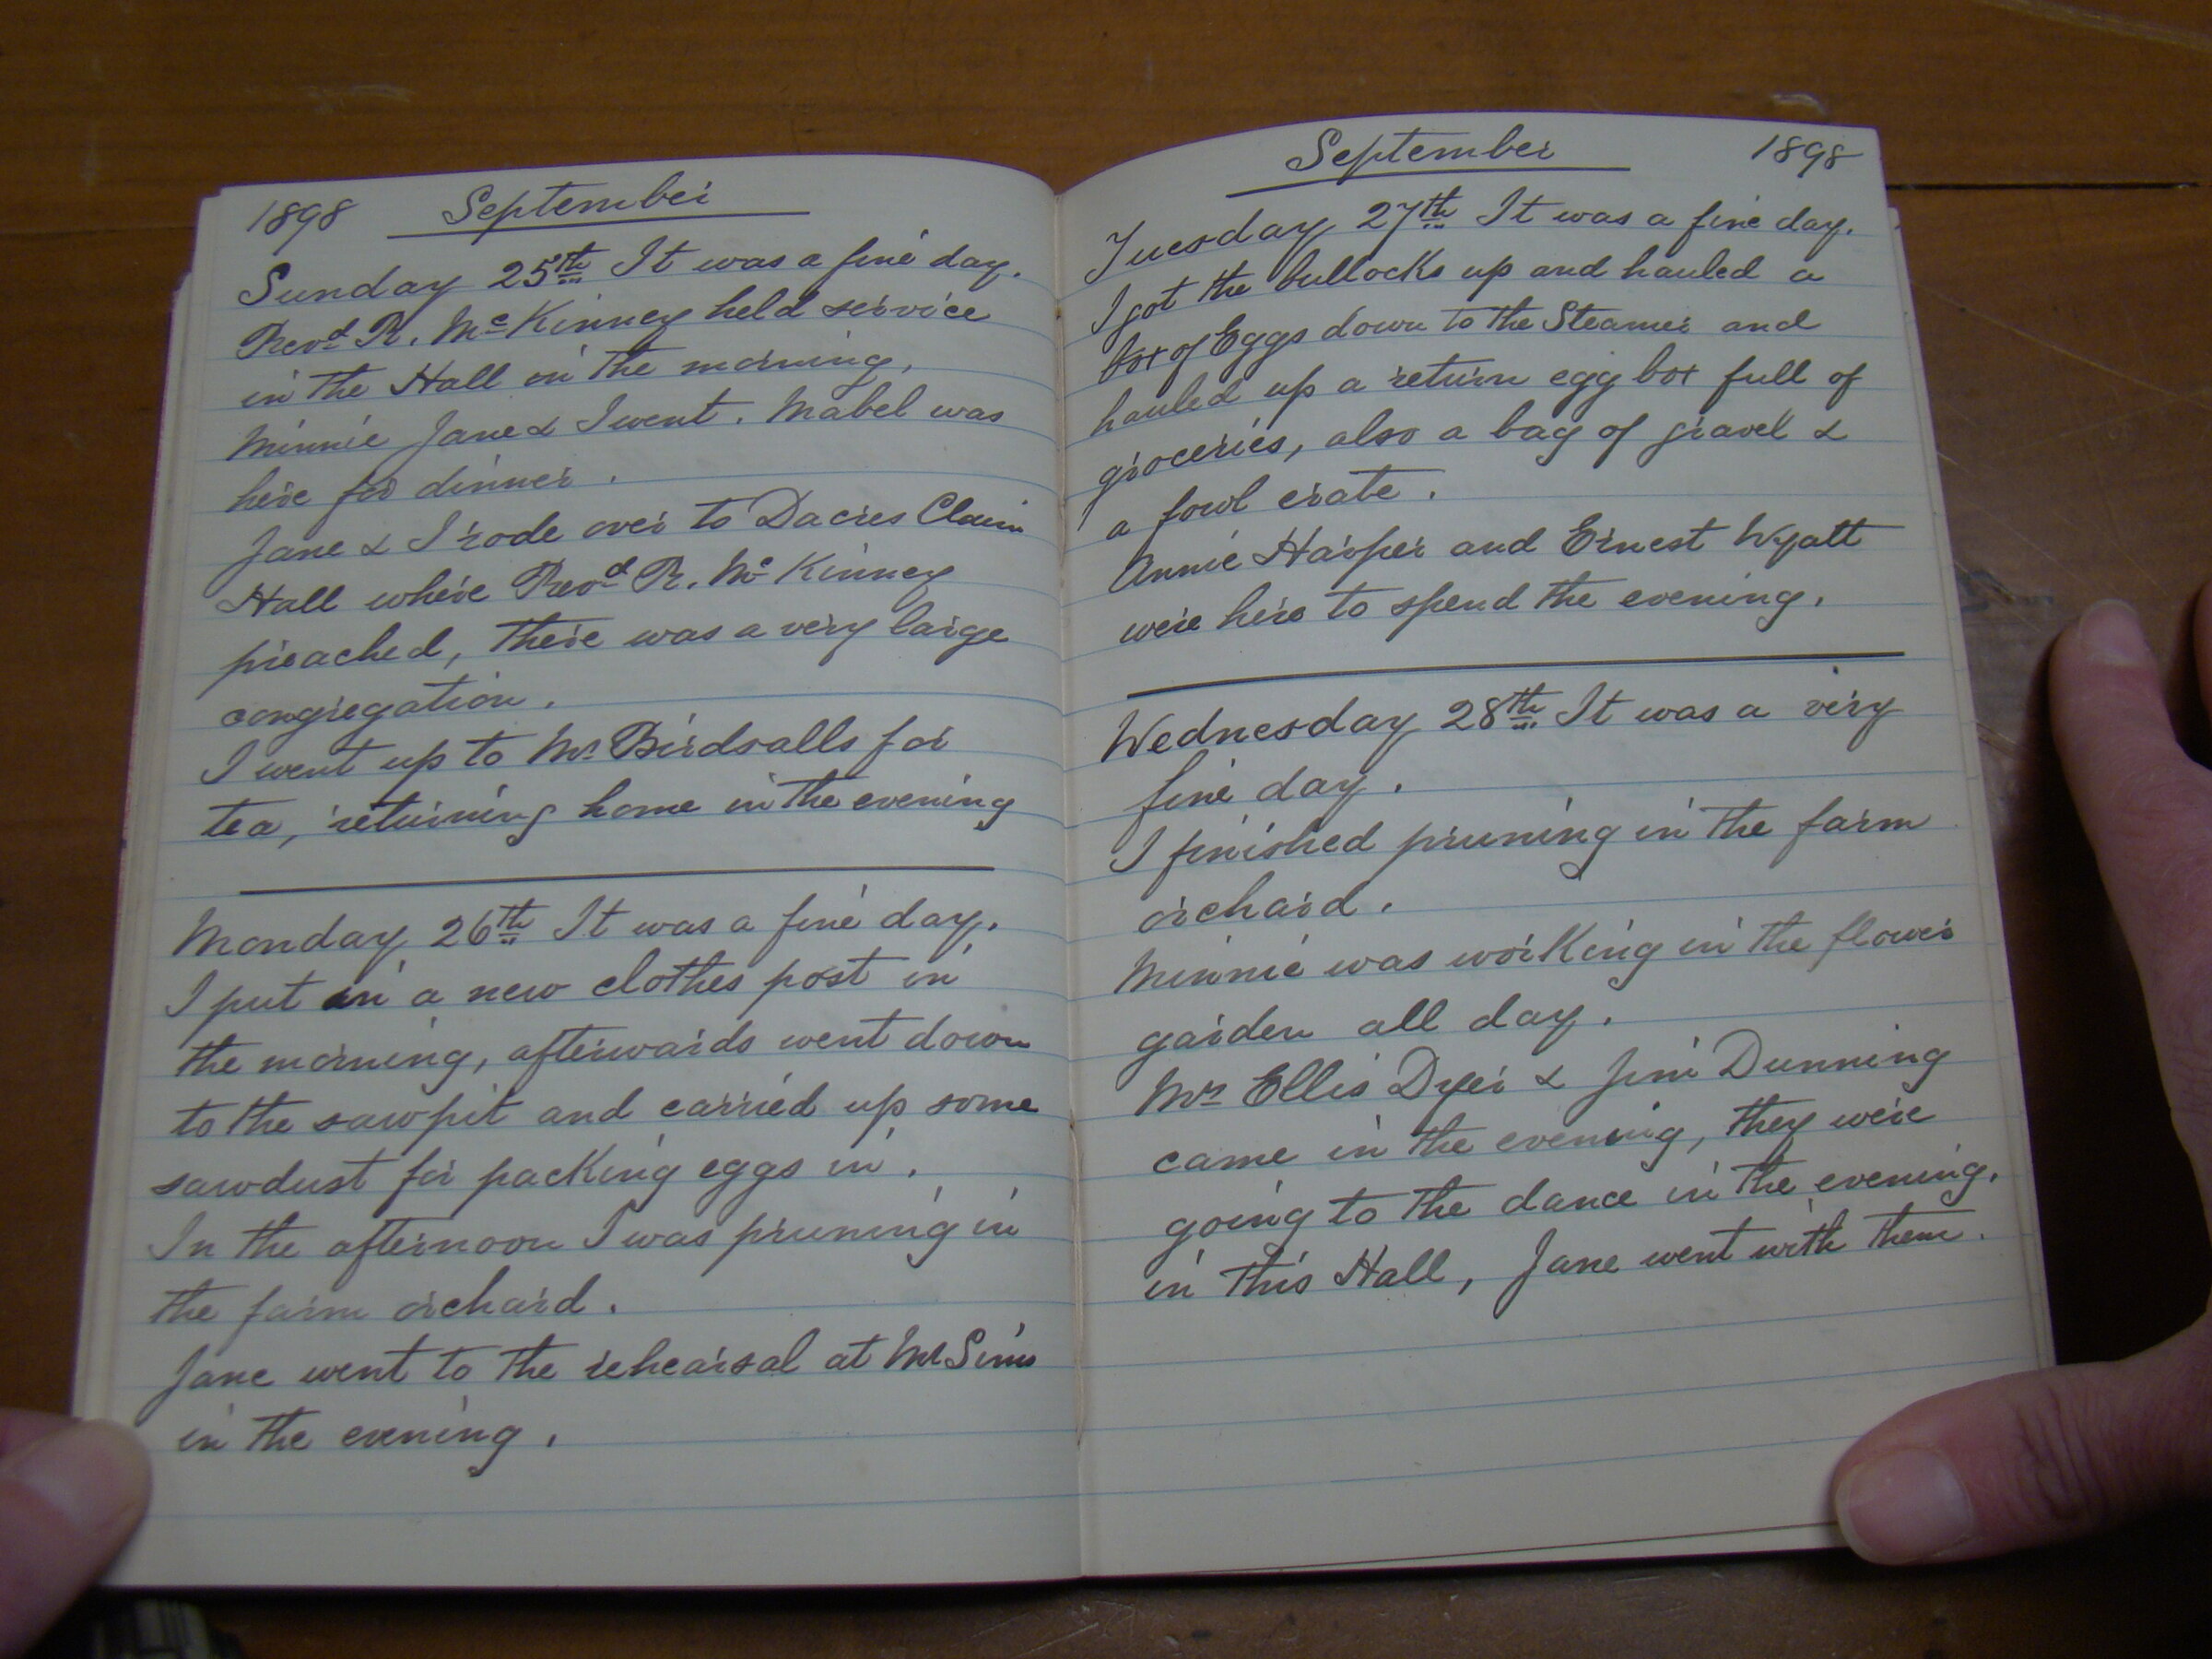 1898 September
Sunday 25th It was a fine day.
Revd R. McKinney held service
in the Hall in the morning,
Minnie Jane & I went. Mabel was
here for dinner.
Jane & I rode over to Dacres Claim
Hall where Revd R. McKinney
preached, there was a very large
congregation.
I went up to Mr Birdsalls for
tea, returning home in the evening
Monday 26th It was a fine day.
I put in a new clothes post in
the morning, afterwards went down
to the sawpit and carried up some
sawdust for packing eggs in.
In the afternoon I was pruning in
the farm orchard.
Jane went to the rehearsal at Mr Sims
in the evening.
September 1898
Tuesday 27th It was a fine day.
I got the bullocks up and hauled a
box of Eggs down to the Steamer and
hauled up a return egg box full of
groceries, also a bag of gravel &
a fowl crate.
Annie Harper and Ernest Wyatt
were here to spend the evening.
Wednesday 28th It was a very
fine day.
I finished pruning in the farm
orchard.
Minnie was working in the flower
garden all day.
Mr Ellis Dyer & Jim Dunning
came in the evening, they were
going to the dance in the evening.
in this Hall, Jane went with them.